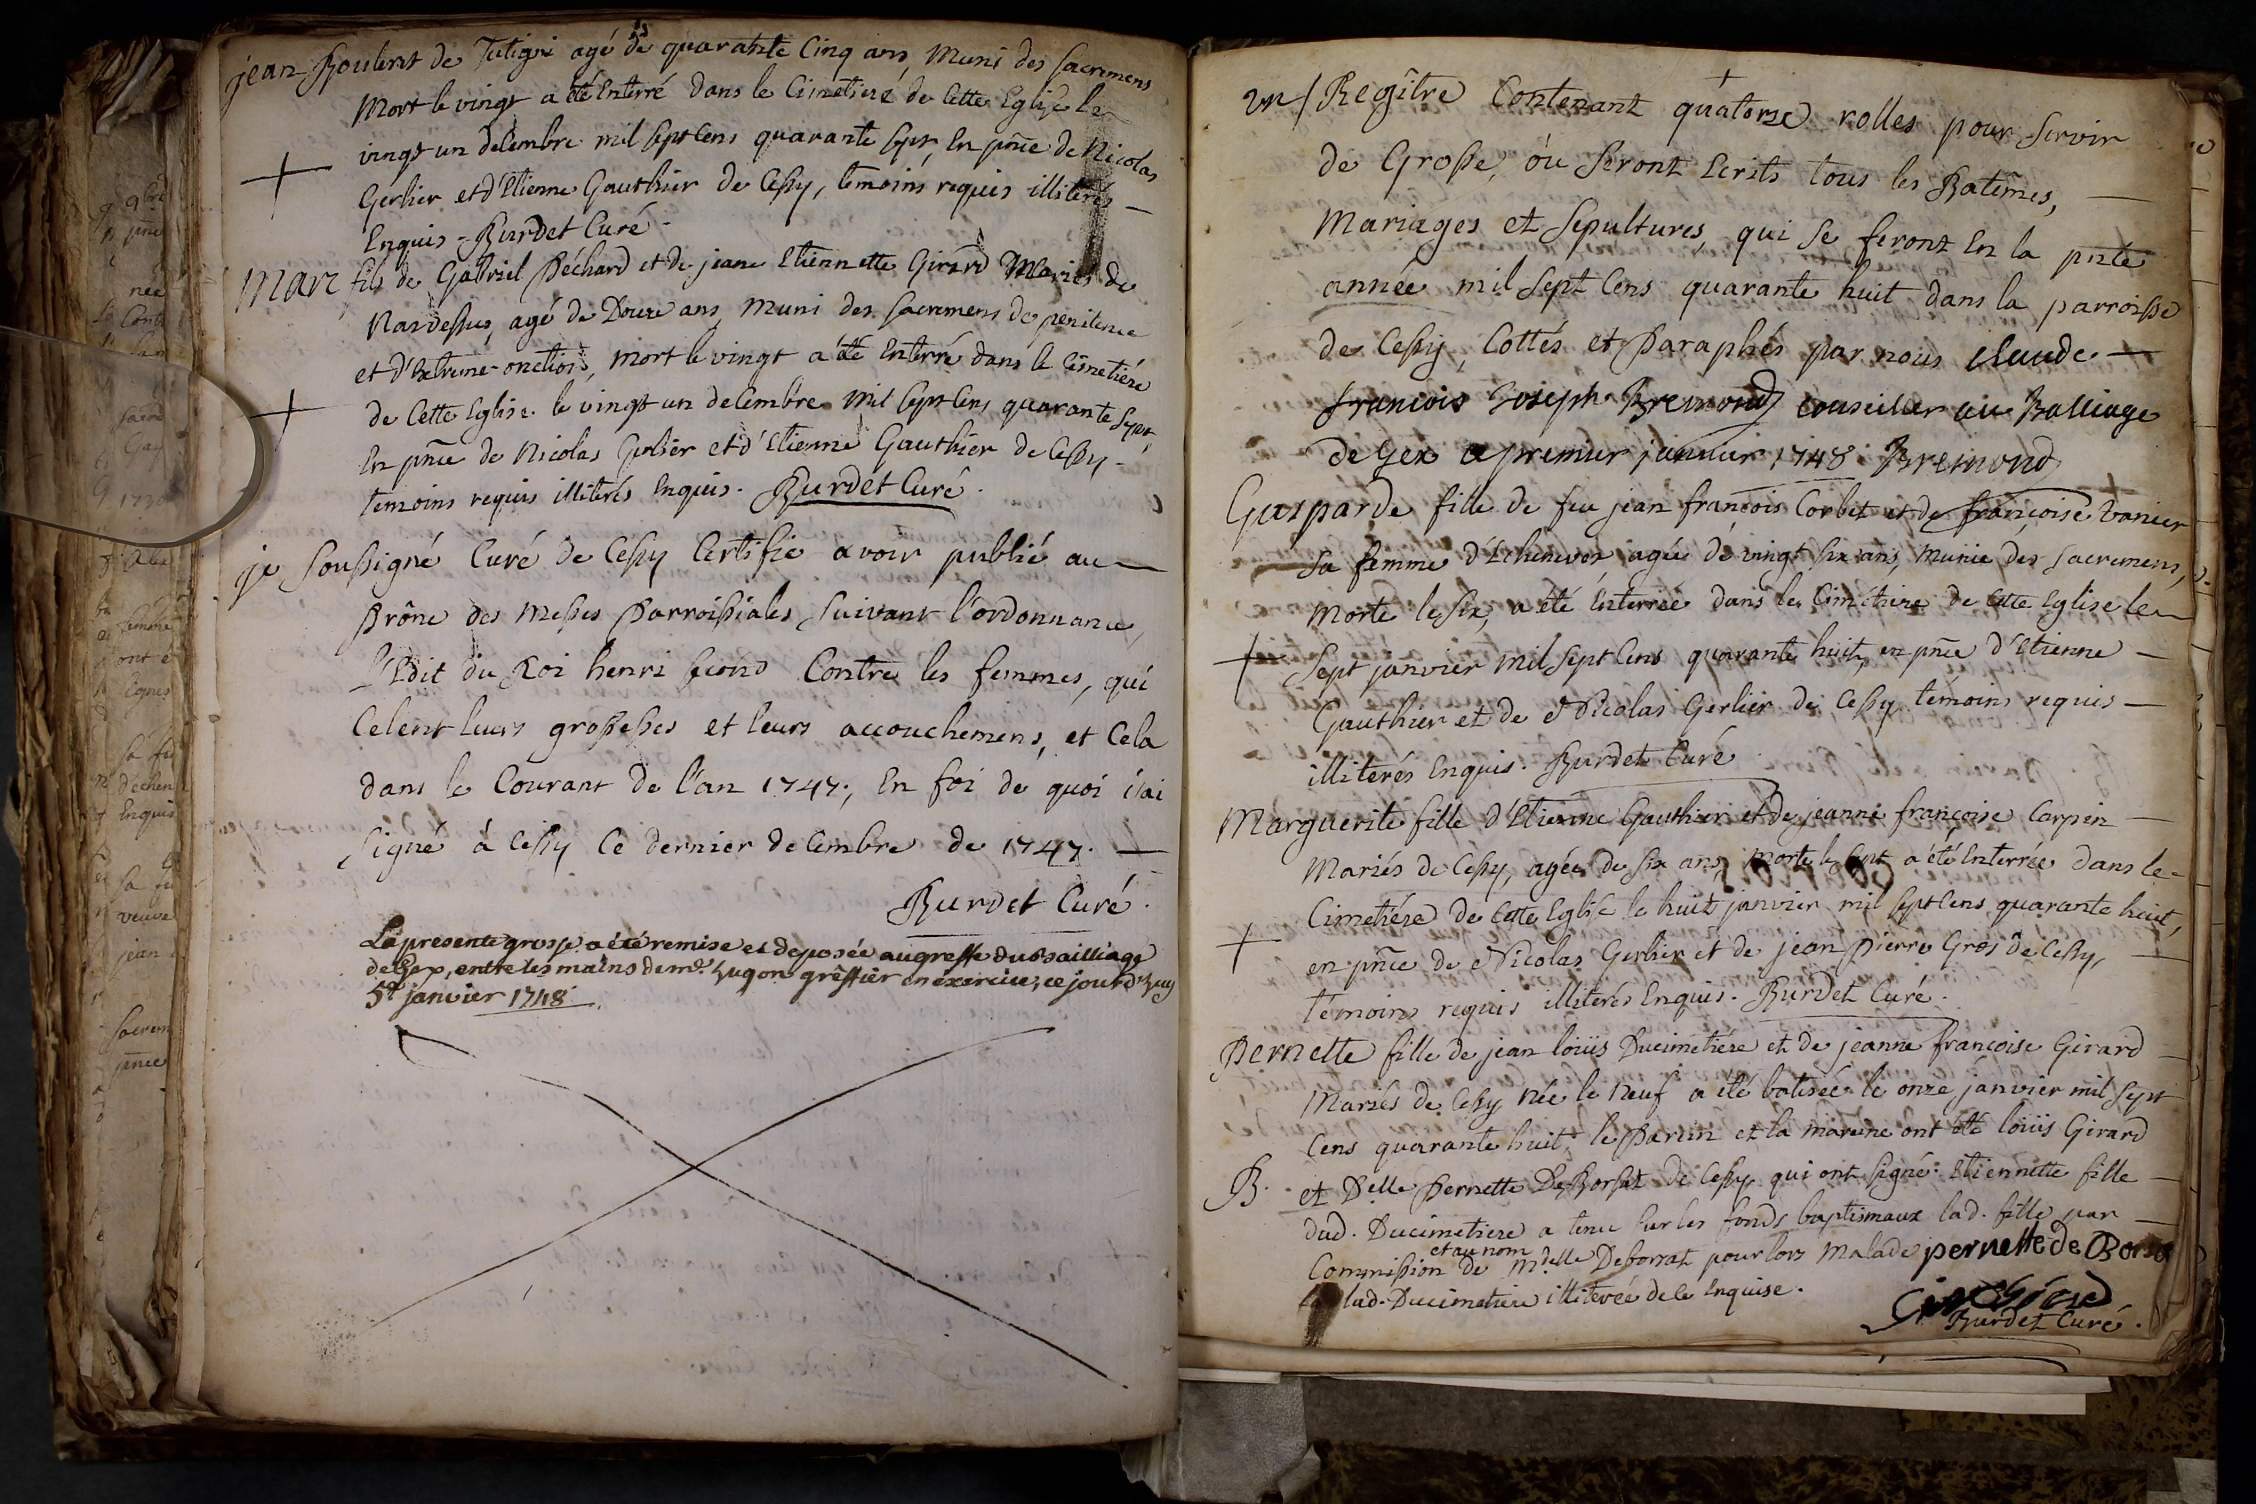 jean Boulent de Tutigni agé de quarante Cinq ans, Muni des sacremens
Mort le vingt a été Enterré dans le Cimetiere de Cette Eglise le
vingt un decembre mil sept Cens quarante sept, En pñce de Nicolas
Gerlier et d'Etienne Gauthier de Cessy, temoins requis illiterés
Enquis - Burdet Curé -
Marc fils de Gabriel Péchard et de jeane Etiennette Girard Mariés de
Nardessus, agé de Douze ans, Muni des sacremens de penitence
et d'Extreme-onction, mort le vingt a été Enterré dans le Cimetiére
de Cette Eglise le vingt un decembre mil sept Cens quarante sept,
En pñce de Nicolas Gerlier et d'Etienne Gauthier de Cessy -
temoins requis illiterés Enquis. Burdet Curé.
je soussigné Curé de Cessy Certifie avoir publié au
Prône des Messes Parroissiales, suivant l'ordonnance,
l'Edit du Roi henri second Contre les femmes, qui
Celent leurs grossesses et leurs accouchemens, et Cela
dans le Courant de l'an 1747; En foi de quoi j'ai
signé à Cessy Ce dernier decembre de 1747.
Burdet Curé.
La presente grosse a été remise et deposée au greffe du Bailliage
de Gex, entre les mains de me. hugon grêffier en éxercice, ce jourd'huy
5e. janvier 1748
un / Regître Contenant quatorze rolles pour servir
de Grosse, où seront Ecrits tous les Batêmes,
Mariages et Sepultures, qui se feront En la pñte
année mil sept Cens quarante huit dans la parroisse
de Cessy, Cottés et Paraphés par nous Claude
francois Joseph Bremond conseiller au Balliage
de Gex a premier janvier 1748 Bremond
Gasparde fille de feu jean françois Corbet et de françoise Vanier
sa femme d'Echenevex, agée de vingt six ans, Munie des sacremens,
Morte le six, a été Enterrée dans le Cimetiere de Cette Eglise le
sept janvier mil sept Cens quarante huit, en pñce d'Etienne
Gauthier et de Nicolas Gerlier de Cessy temoins requis
illiterés Enquis. Burdet Curé
Marguerite fille d'Etienne Gauthier et de jeanne françoise Carpin
Mariés de Cessy, agée de six ans, Morte le sept a été Enterrée dans le
Cimetiére de Cette Eglise le huit janvier mil sept Cens quarante huit,
en pñce de Nicolas Gerlier et de jean Pierre Gros de Cessy,
témoins requis illiterés Enquis. Burdet Curé.
Pernette fille de jean loüis Ducimetiére et de jeanne francoise Girard
Mariés de Cessy Née le Neuf a été batisée le onze janvier mil sept
Cens quarante huit; le Parein et la mareine ont été loüis Girard
B. et Delle Pernette DeBorsat de Cessy qui ont signé. Etiennette fille
dud. Ducimetiere a tenu sur les fonds baptismaux lad. fille par
et au nom
Commission de Mdelle Deborsat pour lors Malade pernette de Borsat
lad. Ducimetiere illiterée de ce Enquise.
Girard
Burdet Curé.